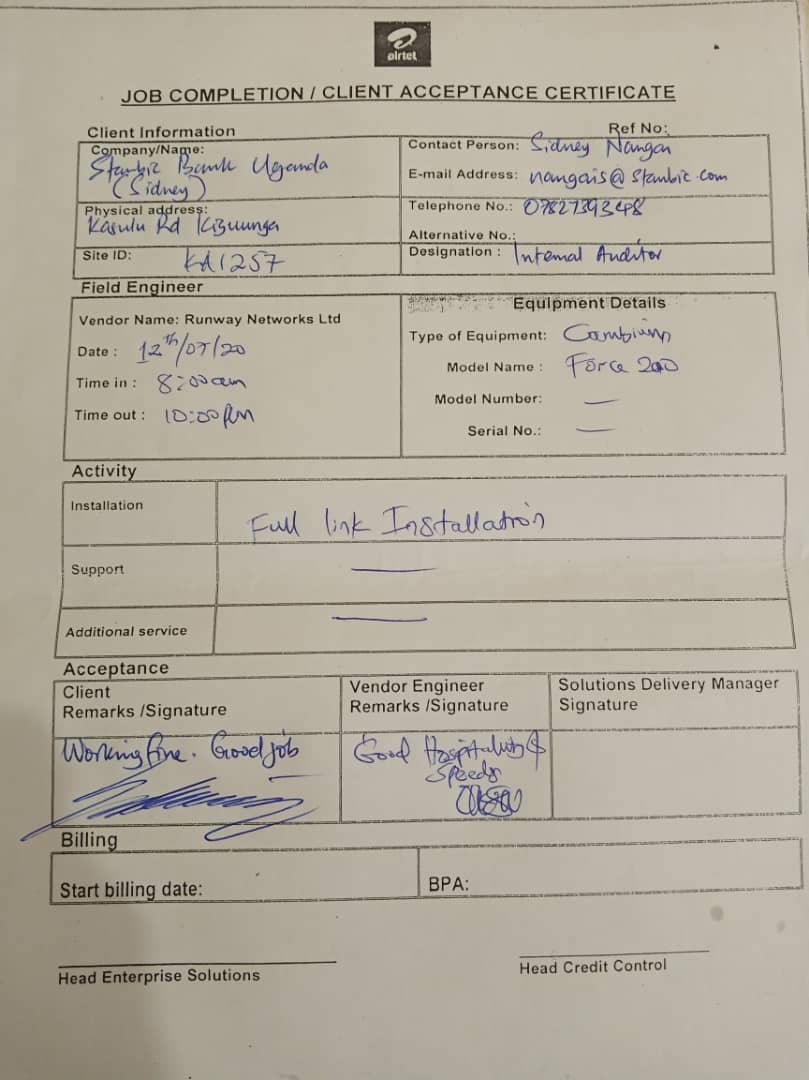 airtel
JOB COMPLETION / CLIENT ACCEPTANCE CERTIFICATE
Client Information
Ref No:
Company/Name:
Stanbic Bank Uganda
(Sidney)
Contact Person: Sidney Nangai
E-mail Address: nangais@stanbic.com
Physical address:
Kasulu Rd
Telephone No.:
Alternative No.:
Site ID: KA1257
Designation: Internal Auditor
Field Engineer
Equipment Details
Vendor Name: Runway Networks Ltd
Type of Equipment: Cambium
Date: 12th/07/20
Model Name: Force 200
Time in: 8:00am
Model Number: —
Time out: 10:00pm
Serial No.: —
Activity
Installation Full link Installation
Support —
Additional service —
Acceptance
Client
Remarks /Signature
Vendor Engineer
Remarks /Signature
Solutions Delivery Manager
Signature
Working fine. Good job
Good Hospitality &
Speeds
Billing
Start billing date:
BPA:
Head Enterprise Solutions
Head Credit Control